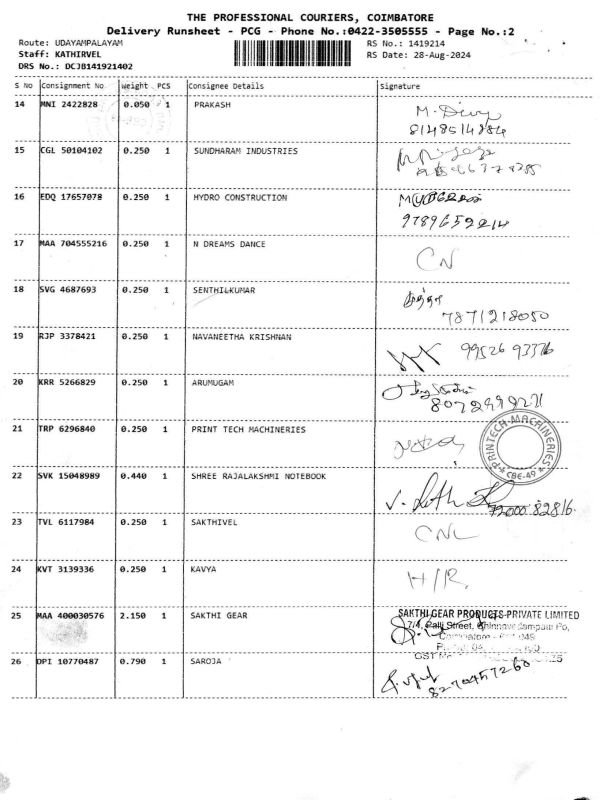 THE PROFESSIONAL COURIERS, COIMBATORE
Delivery Runsheet - PCG - Phone No.:0422-3505555 - Page No.:2
Route: UDAYAMPALAYAM
Staff: KATHIRVEL
DRS No.: DCJB141921402
RS No.: 1419214
RS Date: 28-Aug-2024
S No Consignment No Weight PCS Consignee Details Signature
14 MNI 2422828 0.050 1 PRAKASH
15 CGL 50104102 0.250 1 SUNDHARAM INDUSTRIES
16 EDQ 17657078 0.250 1 HYDRO CONSTRUCTION
9789659214
17 MAA 704555216 0.250 1 N DREAMS DANCE CN
18 SVG 4687693 0.250 1 SENTHILKUMAR
7871218050
19 RJP 3378421 0.250 1 NAVANEETHA KRISHNAN 99526 93376
20 KRR 5266829 0.250 1 ARUMUGAM
21 TRP 6296840 0.250 1 PRINT TECH MACHINERIES
PRINTECH-MACHINERIES
CBE-49
22 SVK 15048989 0.440 1 SHREE RAJALAKSHMI NOTEBOOK
72000 82816
23 TVL 6117984 0.250 1 SAKTHIVEL CNL
24 KVT 3139336 0.250 1 KAVYA H/R
25 MAA 400030576 2.150 1 SAKTHI GEAR
SAKTHI GEAR PRODUCTS PRIVATE LIMITED
Street,
26 DPI 10770487 0.790 1 SAROJA
8270457260